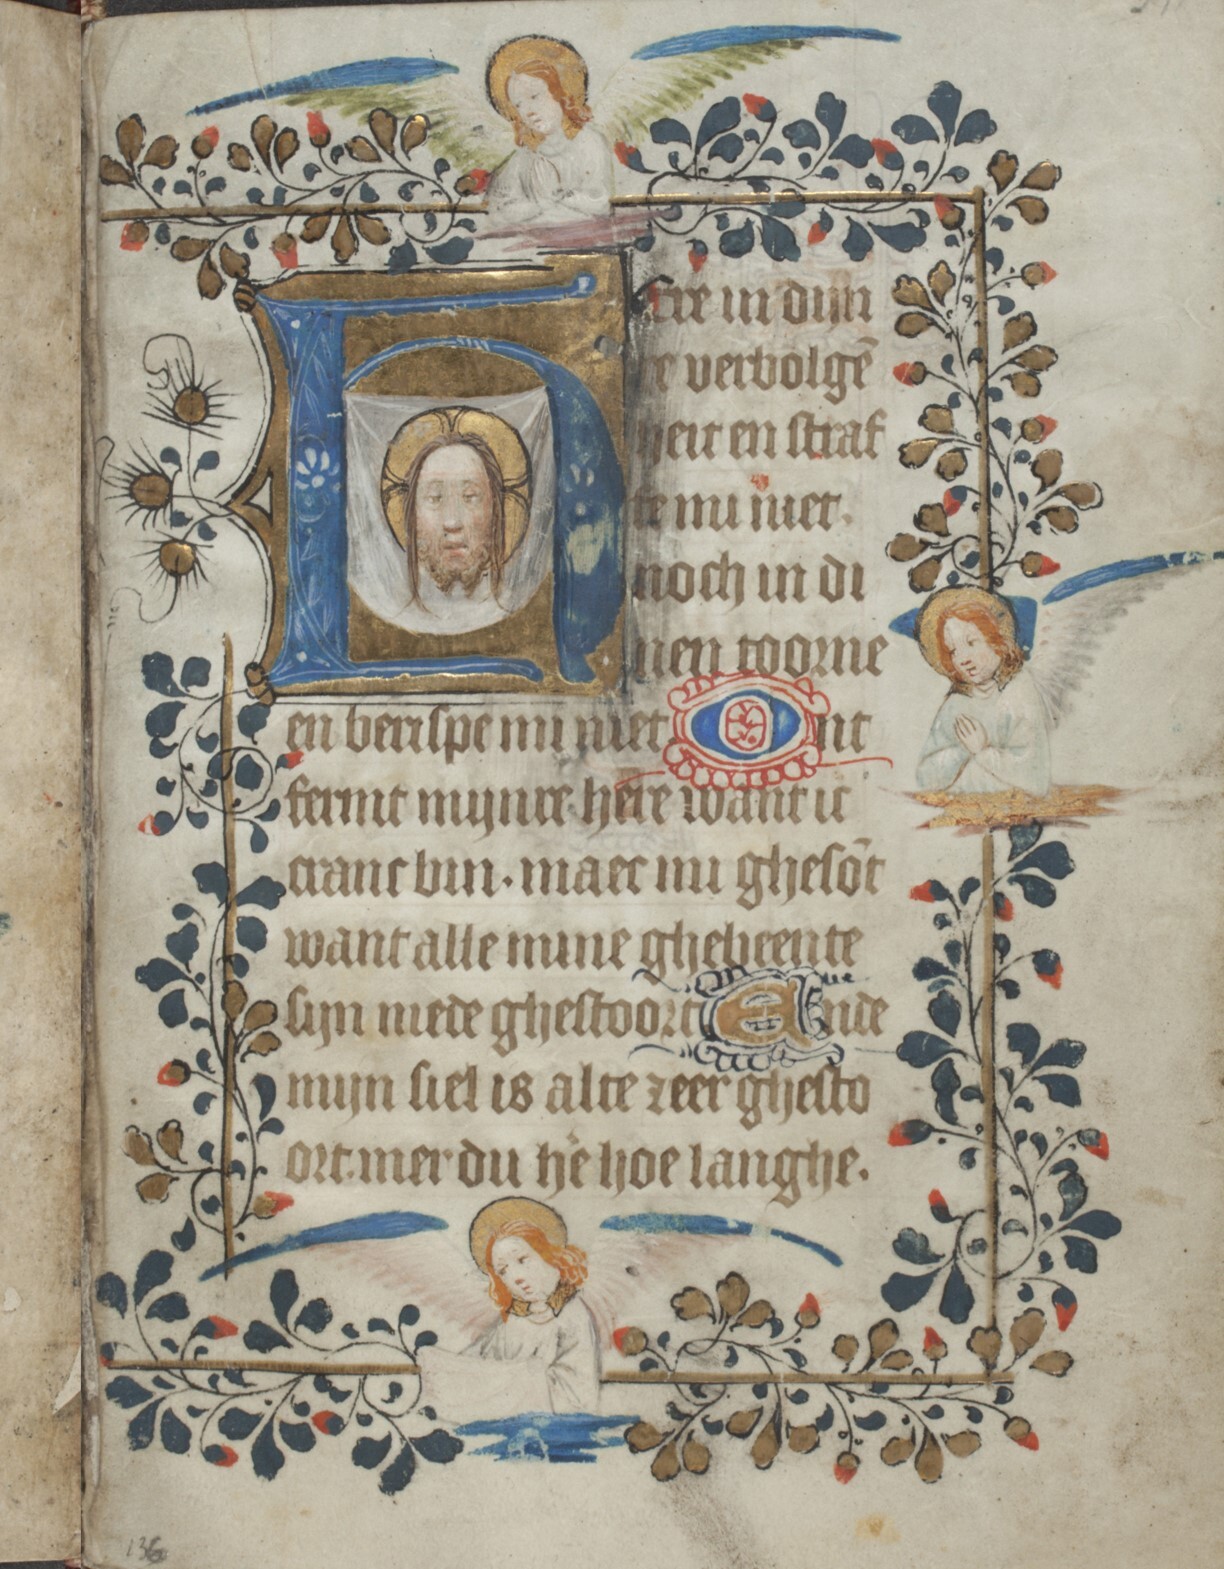 Here in dijn
re verbolgē
heit en straf
fe mi niet.
noch in di
nen toorne
en berispe mi niet Ont
fermt mijnre hēre want ic
cranc bin. maec mi ghesōt
want alle mine ghebeente
sijn mede ghestoort Ende
mijn siel is alte zeer ghesto
ort. mer du hēe hoe langhe.
136